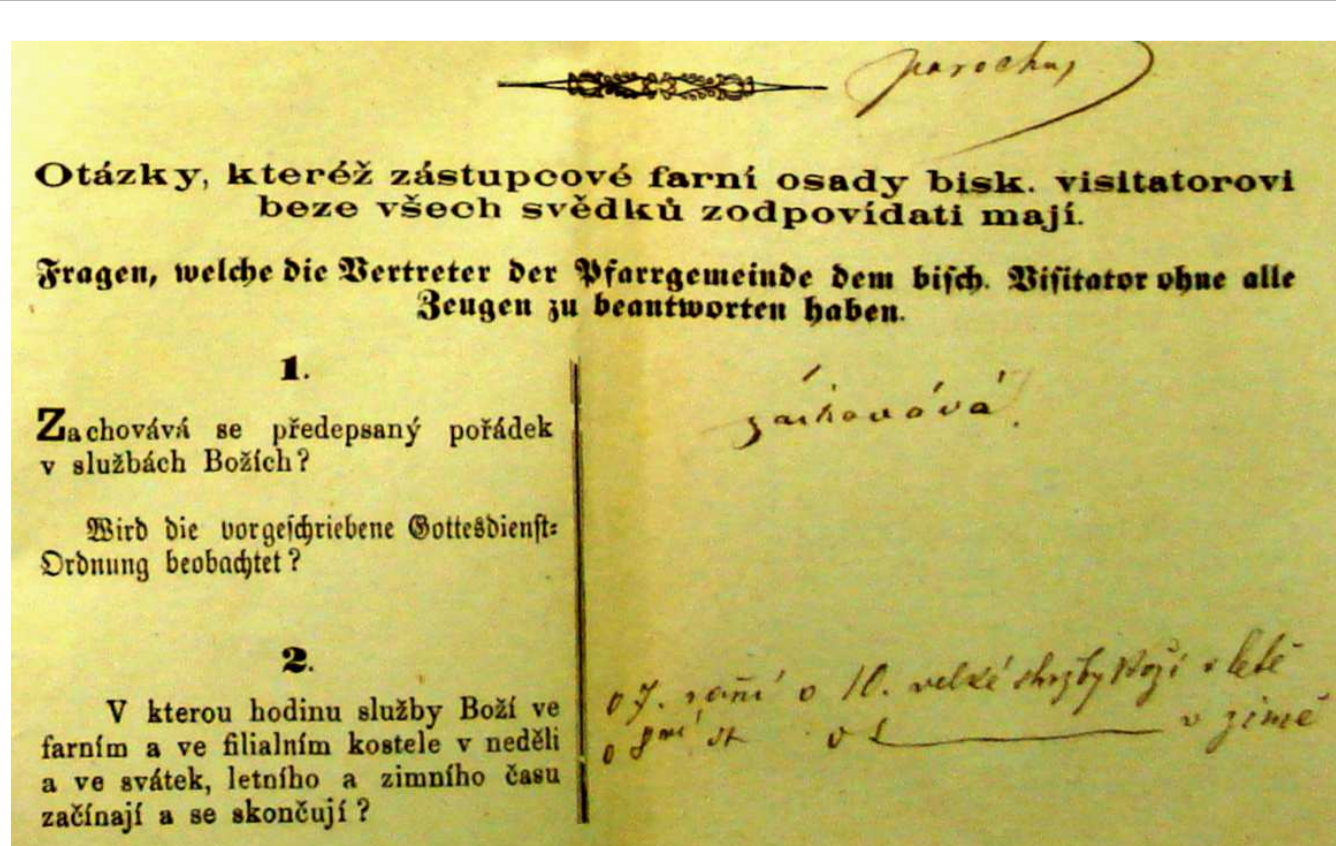 parochus
Otázky, kteréž zástupcové farní osady bisk. visitatorovi
beze všech svědků zodpovídati mají.
Fragen, welche die Vertreter der Pfarrgemeinde dem bisch. Visitator ohne alle
Zeugen zu beantworten haben.
1.
Zachovává se předepsaný pořádek
v službách Božích?
zachovává.
Wird die vorgeschriebene Gottesdienst-
Ordnung beobachtet?
2.
V kterou hodinu služby Boží ve
farním a ve filialním kostele v neděli
a ve svátek, letního a zimního času
začínají a se skončují?
o 7. ranní o 10. velké služby Boží v letě
o 8 v zimě